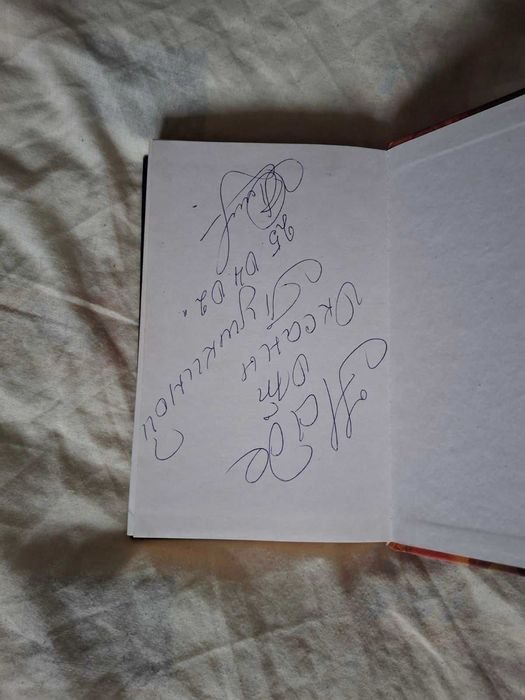 Наде
от
Оксаны
Пушкиной
25.04.02.